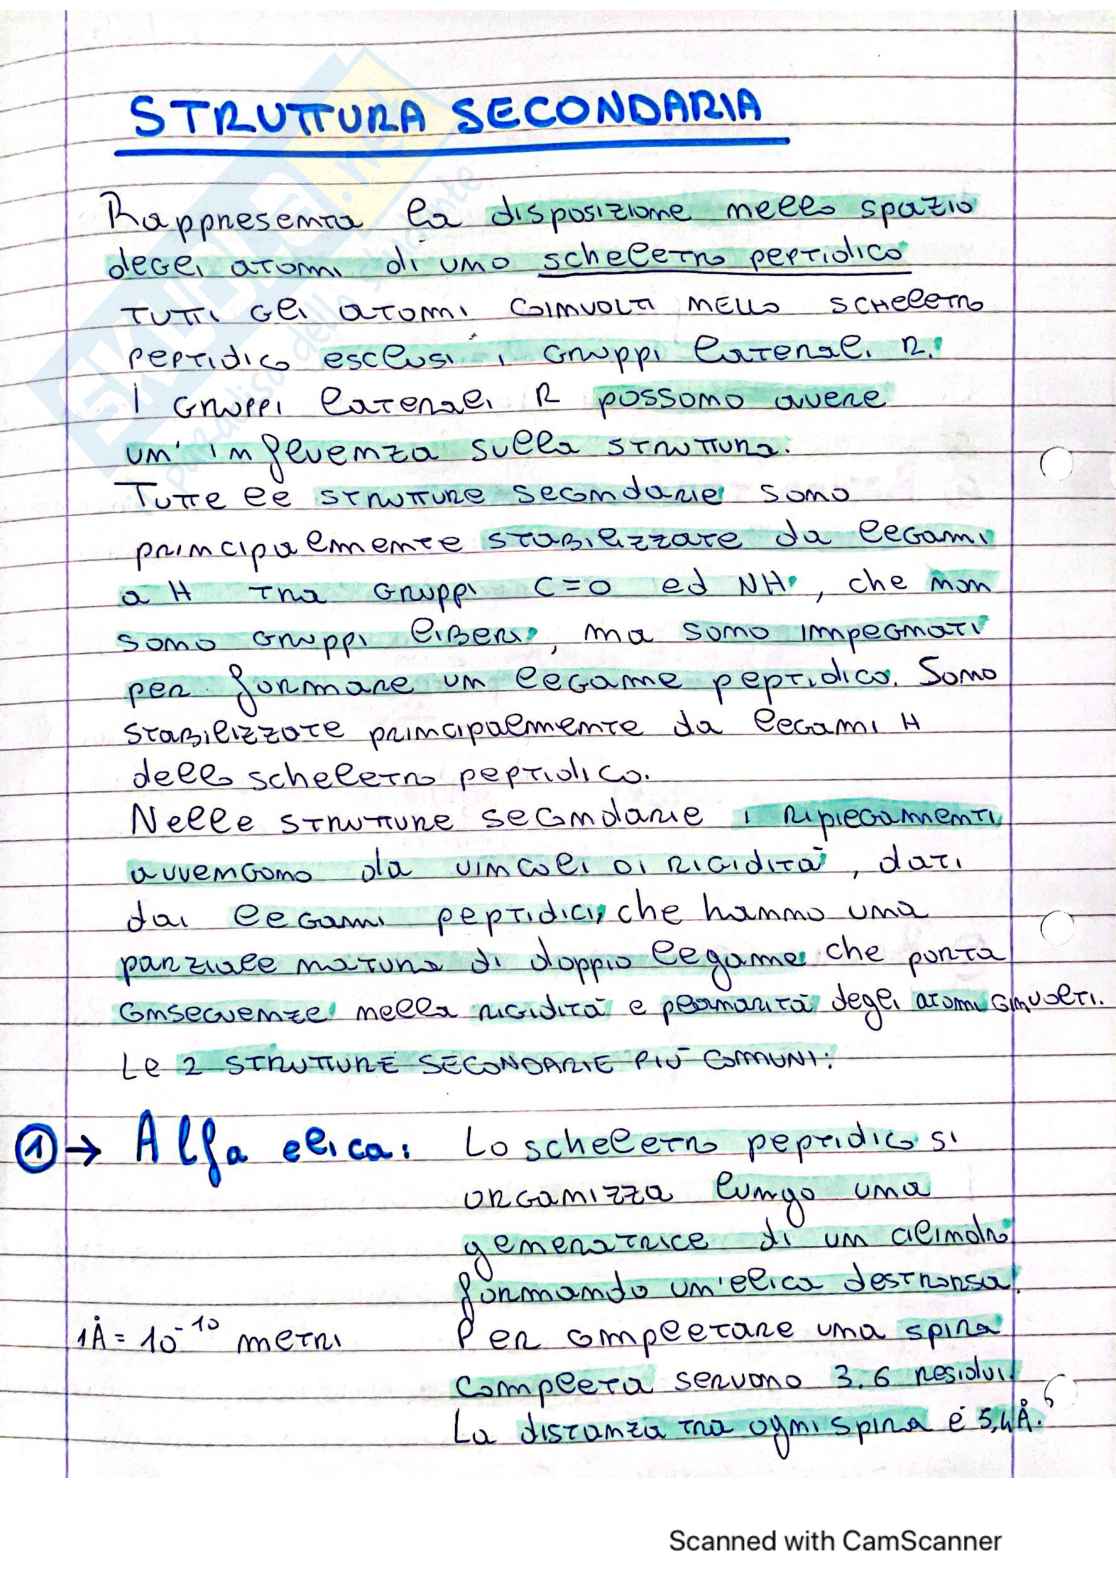 STRUTTURA SECONDARIA
Rappresenta la disposizione nello spazio
degli atomi di uno scheletro peptidico
TUTTI gli atomi coinvolti nello scheletro
peptidico esclusi i gruppi laterali R.
I gruppi laterali R possono avere
un'influenza sulla struttura.
Tutte le strutture secondarie sono
principalmente stabilizzate da legami
a H tra gruppi C=O ed NH, che non
sono gruppi liberi, ma sono impegnati
per formare un legame peptidico. Sono
stabilizzate principalmente da legami H
dello scheletro peptidico.
Nelle strutture secondarie i ripiegamenti
avvengono da vincoli di rigidità, dati
dai legami peptidici, che hanno una
parziale natura di doppio legame che porta
conseguenze nella rigidità e planarità degli atomi coinvolti.
Le 2 STRUTTURE SECONDARIE PIÙ COMUNI:
① → Alfa elica: Lo scheletro peptidico si
organizza lungo una
generatrice di un cilindro
formando un'elica destrorsa.
1Å = 10⁻¹⁰ metri Per completare una spira
completa servono 3.6 residui.
La distanza tra ogni spira è 5,4 Å.
SKUOLA.net
il paradiso dello studente
Scanned with CamScanner